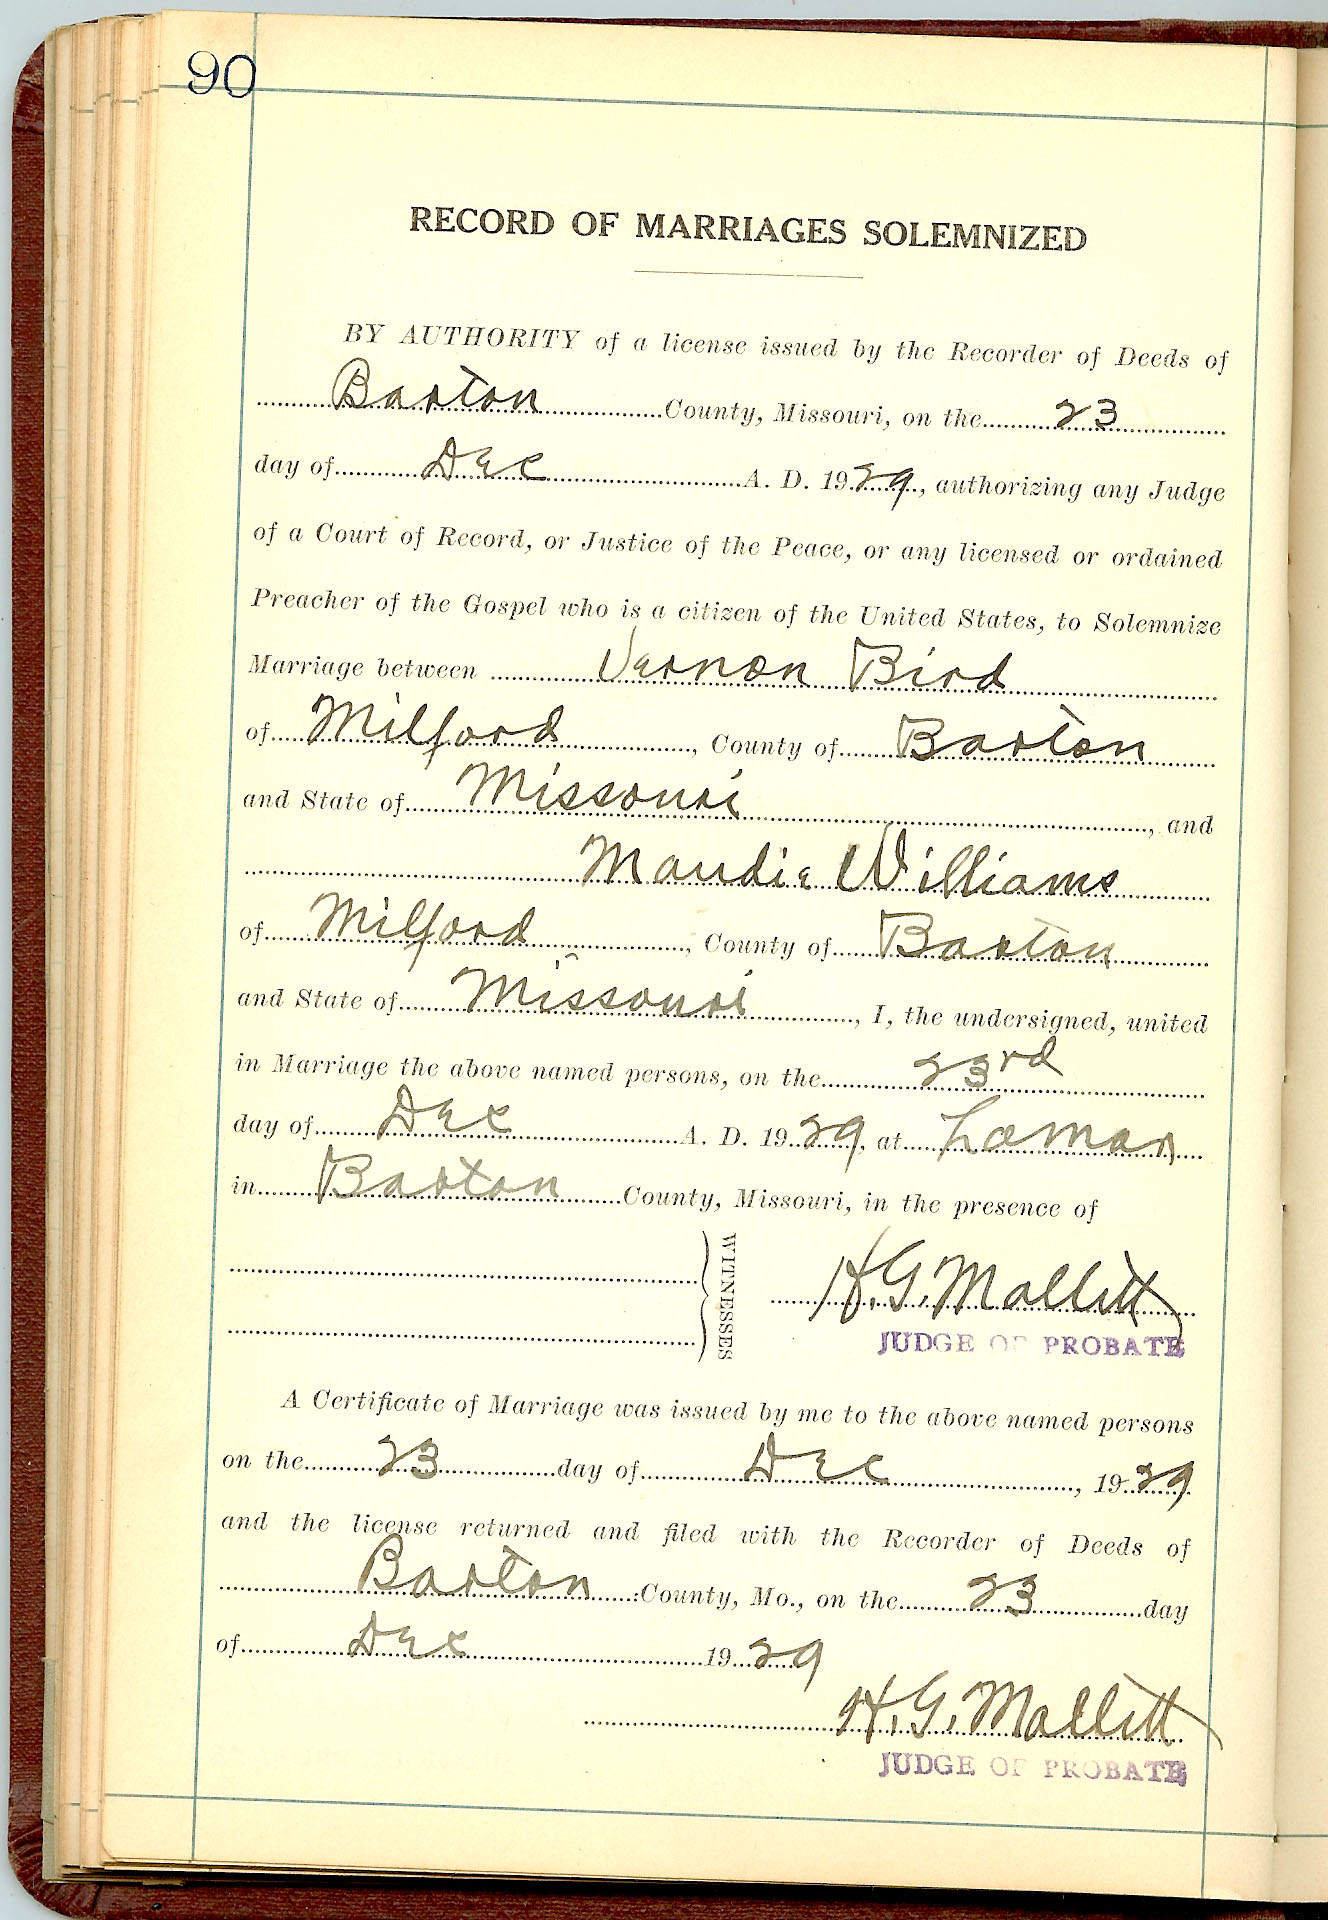 90
RECORD OF MARRIAGES SOLEMNIZED
BY AUTHORITY of a license issued by the Recorder of Deeds of
Barton County, Missouri, on the 23
day of Dec A. D. 1929, authorizing any Judge
of a Court of Record, or Justice of the Peace, or any licensed or ordained
Preacher of the Gospel who is a citizen of the United States, to Solemnize
Marriage between Vernon Bird
of Milford, County of Barton
and State of Missouri, and
Maudie Williams
of Milford, County of Barton
and State of Missouri, I, the undersigned, united
in Marriage the above named persons, on the 23rd
day of Dec A. D. 1929, at Lamar
in Barton County, Missouri, in the presence of
WITNESSES
H. G. Mallitt
JUDGE OF PROBATE
A Certificate of Marriage was issued by me to the above named persons
on the 23 day of Dec, 1929
and the license returned and filed with the Recorder of Deeds of
Barton County, Mo., on the 23 day
of Dec 1929
H. G. Mallitt
JUDGE OF PROBATE